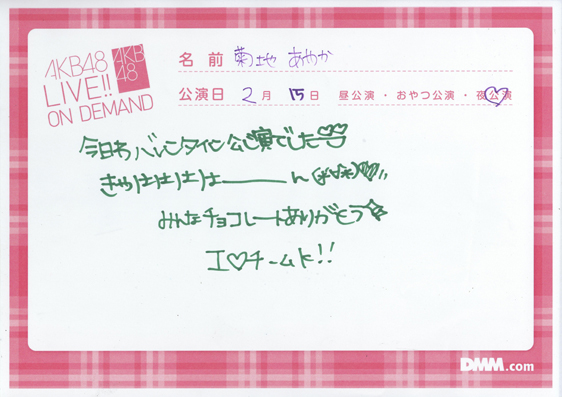 AKB48
LIVE!!
ON DEMAND
AKB
48
名前 菊地 あやか
公演日 2月 15日 昼公演・おやつ公演・夜公演
今日わバレンタイン公演でした♡♡
きゃははははーーーん(*´∀`*)♡♡!!
みんなチョコレートありがとう☆
I♡チームK!!
DMM.com